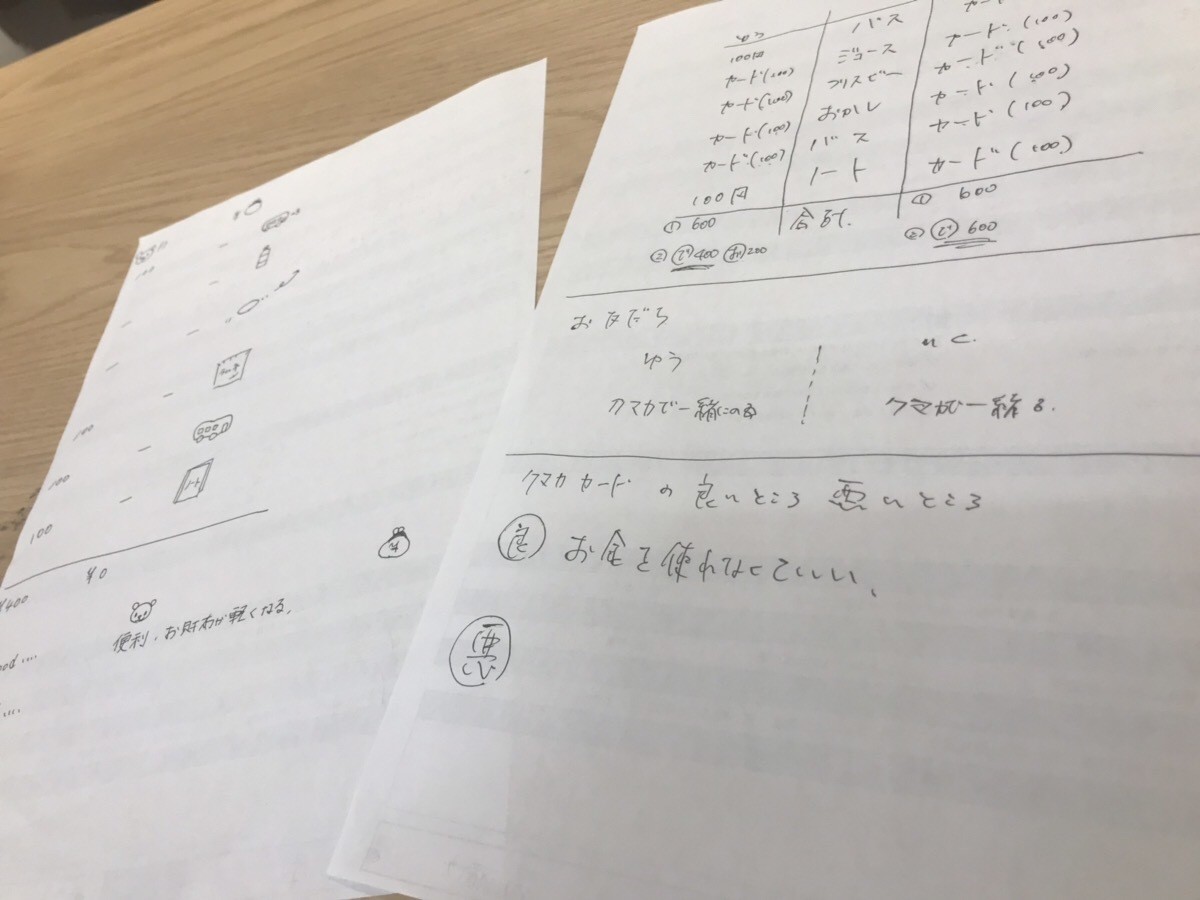 100
-
-
-
-
-
-
100
100
100
¥0
¥400
便利・お財布が軽くなる。
ゆう バス
100円 ジュース カード(100)
カード(100) フリスビー カード(100)
カード(100) おかし カード(100)
カード(100) バス カード(100)
カード(100) ノート カード(100)
100円
① 600 合計. ① 600
② 400 200 ② 600
お友だち
ゆう
クマカで一緒にのる クマカで一緒る.
クマカカードの良いところ 悪いところ
良 お金を使れなくていい.
悪